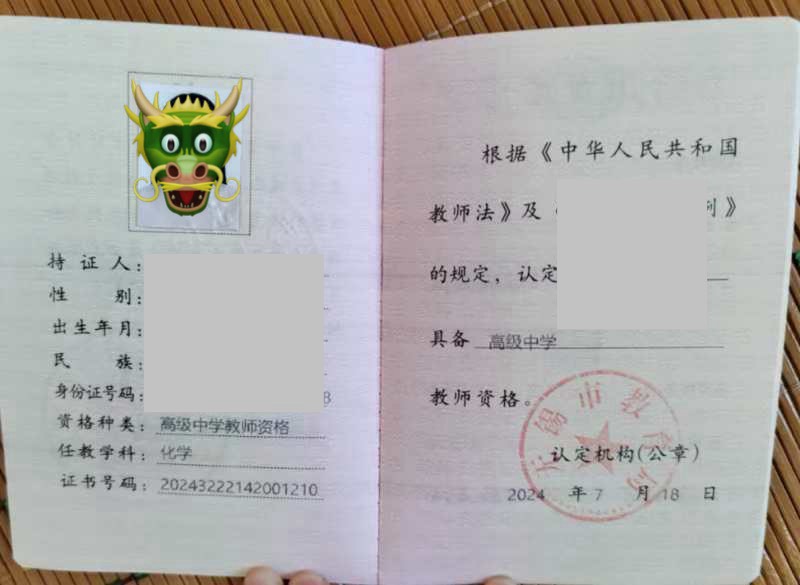 持证人：
性别：
出生年月：
民族：
身份证号码：8
资格种类：高级中学教师资格
任教学科：化学
证书号码：20243222142001210
根据《中华人民共和国
教师法》及《 例》
的规定，认定
具备 高级中学
教师资格。
无锡市教育局
认定机构(公章)
2024 年 7 月 18 日